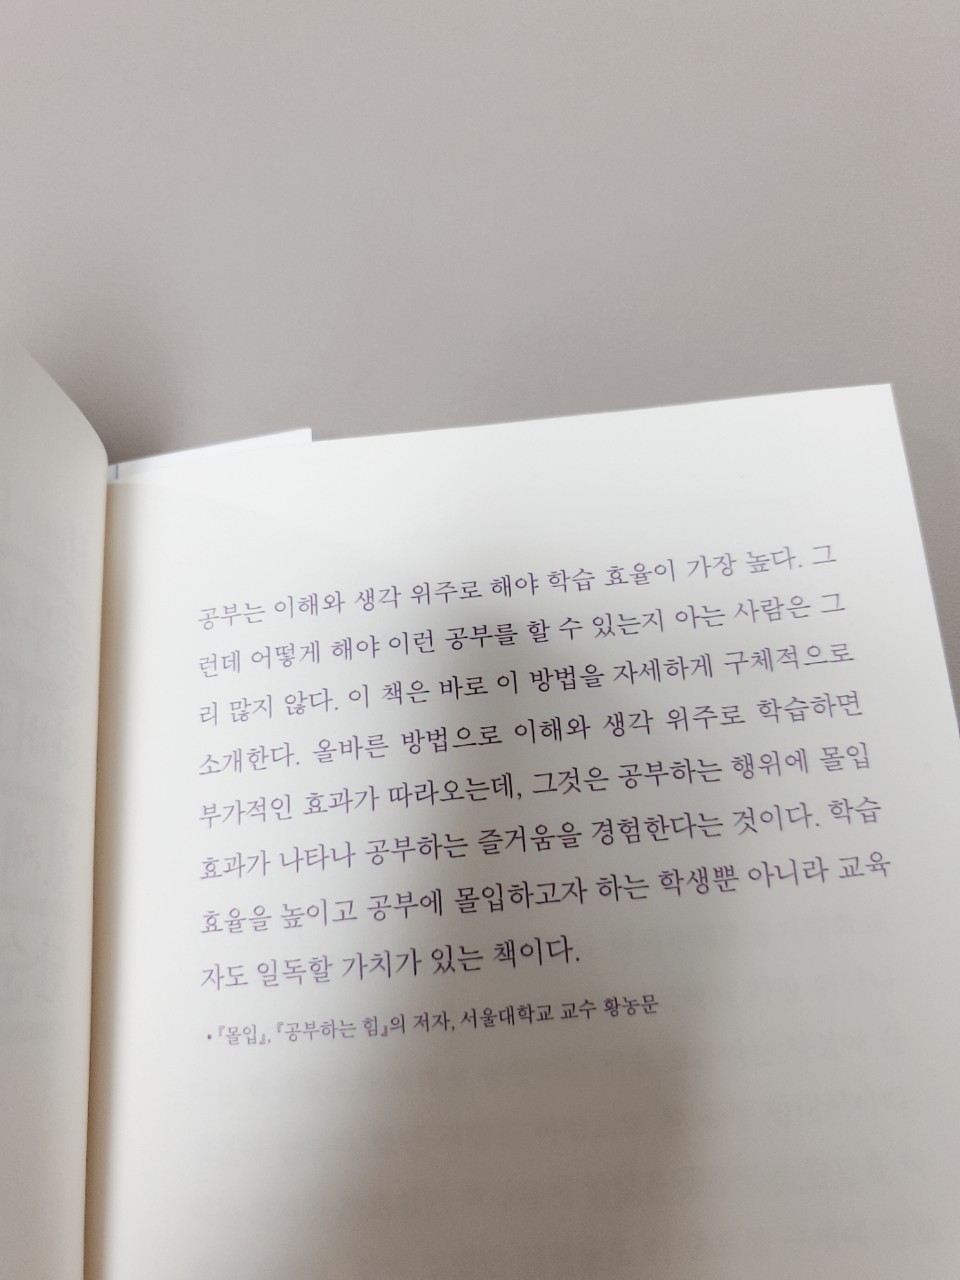 공부는 이해와 생각 위주로 해야 학습 효율이 가장 높다. 그
런데 어떻게 해야 이런 공부를 할 수 있는지 아는 사람은 그
리 많지 않다. 이 책은 바로 이 방법을 자세하게 구체적으로
소개한다. 올바른 방법으로 이해와 생각 위주로 학습하면
부가적인 효과가 따라오는데, 그것은 공부하는 행위에 몰입
효과가 나타나 공부하는 즐거움을 경험한다는 것이다. 학습
효율을 높이고 공부에 몰입하고자 하는 학생뿐 아니라 교육
자도 일독할 가치가 있는 책이다.
• 『몰입』, 『공부하는 힘』의 저자, 서울대학교 교수 황농문